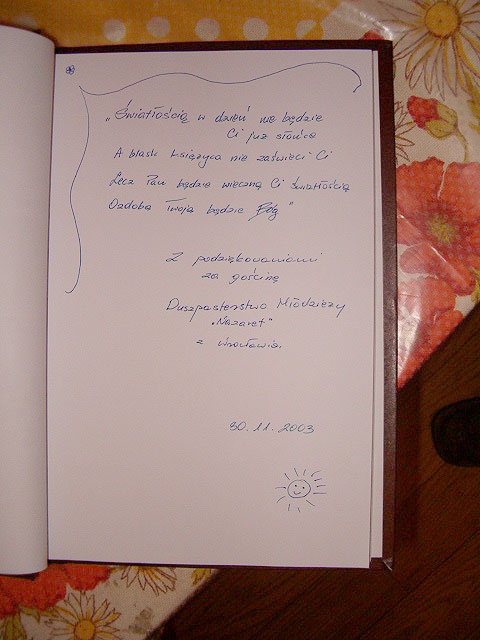 „Światłością w dzień nie będzie
Ci już słońce
A blask księżyca nie zaświeci Ci
Lecz Pan będzie wieczną Ci światłością
Ozdobą Twoją będzie Bóg"
Z podziękowaniami
za gościnę
Duszpasterstwo Młodzieży
„Nazaret"
z Wrocławia.
30.11.2003